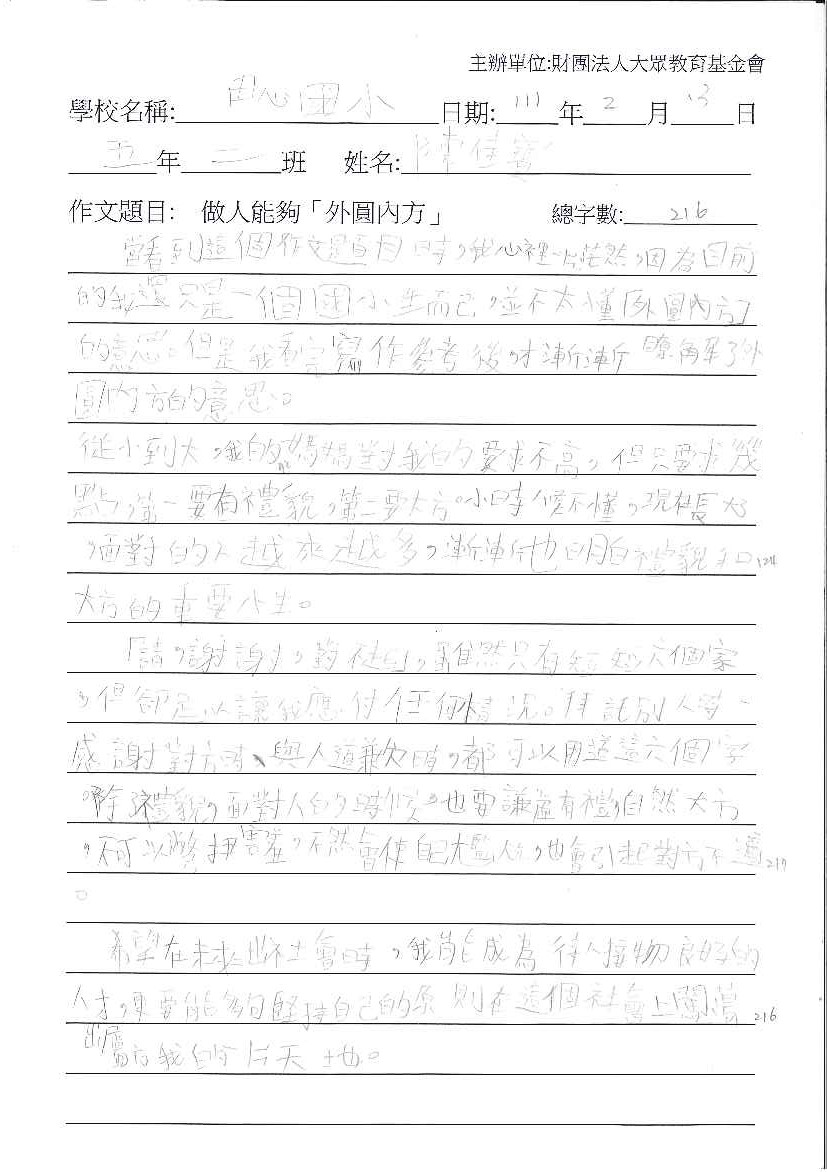 主辦單位:財團法人大眾教育基金會
學校名稱: 心國小 日期: 111 年 2 月 13 日
五 年 二 班 姓名: 陳佳
作文題目: 做人能夠「外圓內方」 總字數: 216
當看到這個作文題目時,我心裡一片茫然,因為目前
的我還只是一個國小生而已,並不太懂「外圓內方」
的意思。但是我看完寫作參考後,才漸漸瞭解了外
圓內方的意思。
從小到大,我的媽媽對我的要求不高,但只要求幾
點,第一要有禮貌,第二要大方。小時候不懂,現在長大
,面對的人越來越多,漸漸也明白禮貌和 124
大方的重要小生。
「請,謝謝,對不起」,雖然只有短短六個家
,但卻足以讓我應付任何情況。拜託別人時、
感謝對方時、與人道歉時,都可以用這這六個字
。除禮貌,面對人的時候,也要謙虛有禮,自然大方
,不可以彆扭害羞,不然會使自己尷尬,也會引起對方不 217
。
希望在未來出社會時,我能成為待人接物良好的
人才,更要能夠堅持自己的原則在這個社會上闖蕩 216
出屬於我的一片天地。